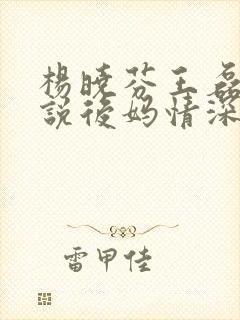 楊曉芬王磊
說後媽情深
雷甲佳